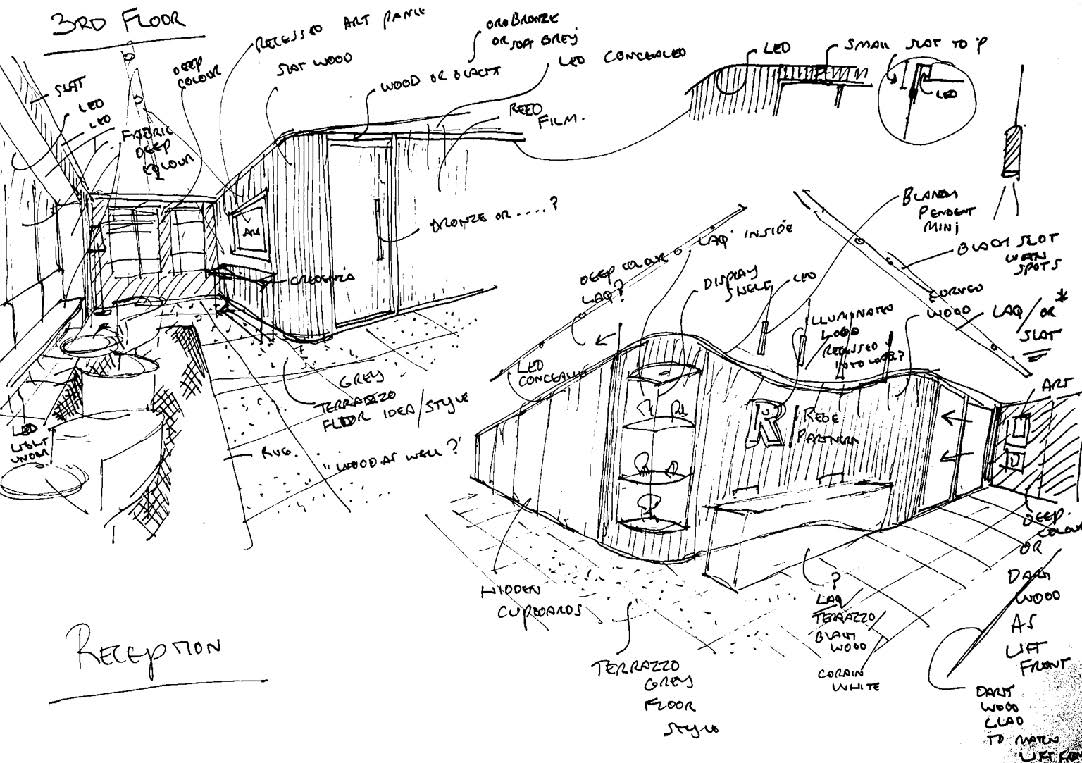 3RD FLOOR
RECESSED ART PANEL
SLAT WOOD
DEEP
COLOUR
SLAT
LED
LED
FABRIC
DEEP
COLOUR
WOOD OR BLACK
OR SOFT GREY
LED CONCEALED
REED
FILM.
BRONZE OR .....?
ART
CREDENZA
LED
SMALL SLOT TO
LED
GREY
TERRAZZO
FLOOR IDEA/STYLE
RUG.
"WOOD AS WELL?"
LED
LIGHT
UNDER
PENDENT
MINI
BLACK SLOT
WITH
SPOTS
LAQ INSIDE
DEEP COLOUR
LAQ?
DISPLAY
SHELF
LED
CURVED
WOOD
LAQ/OR
SLAT
*
ILLUMINATED
LOGO
RECESSED
INTO WOOD?
LED
CONCEALED
R
REDE
PARTNERS
ART
DEEP
COLOUR
OR
DARK
WOOD
AS
LIFT
FRONT
HIDDEN
CUPBOARDS
?
LAQ
TERRAZZO
BLACK
WOOD
CORIAN
WHITE
TERRAZZO
GREY
FLOOR
STYLE
DARK
WOOD
CLAD
TO MATCH
LIFT
RECEPTION